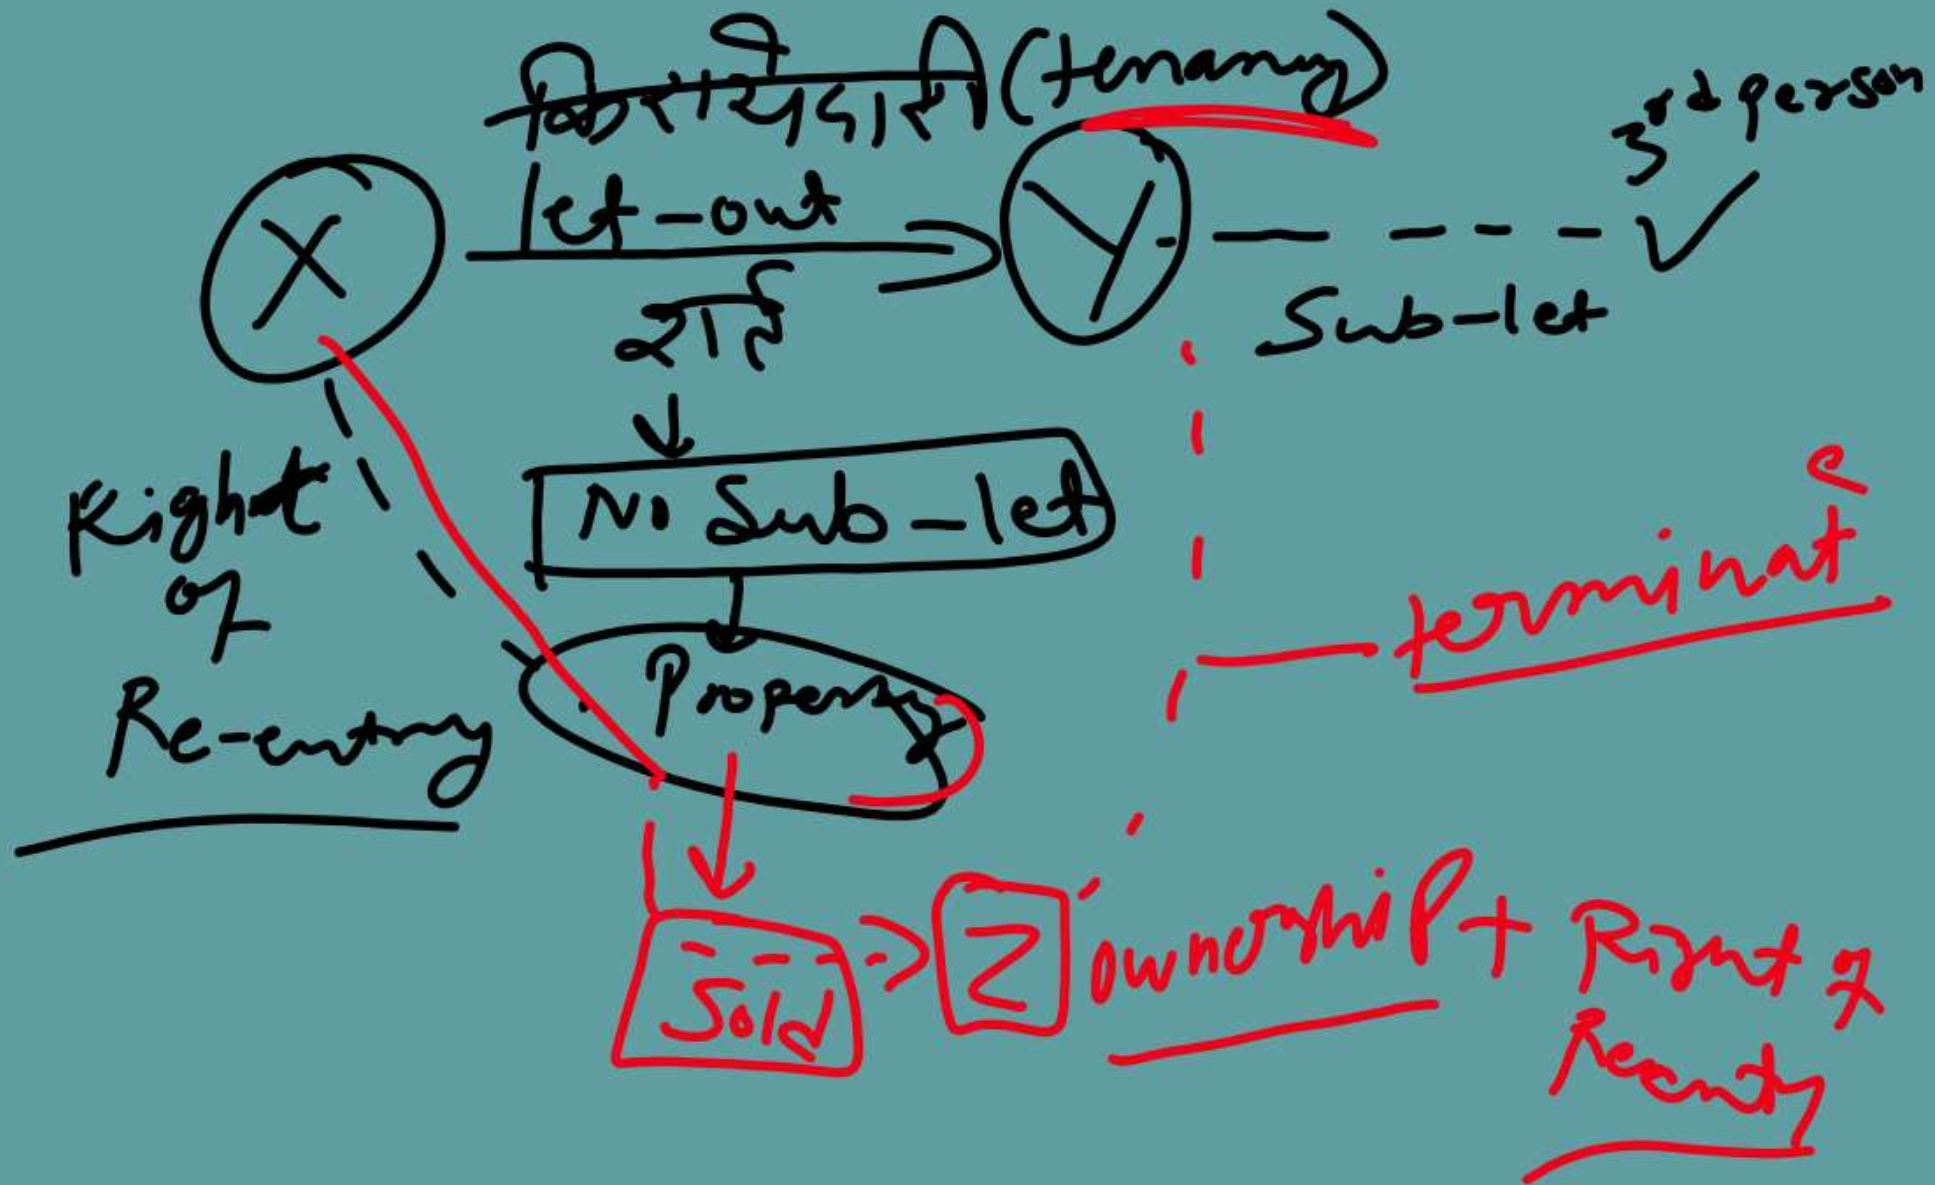 किरायेदारी (tenancy)
3rd person
let-out
X
Y
शर्त
Sub-let
No Sub-let
Right
of
Re-entry
Property
terminate
Sold
Z
ownership + Right of
Reentry